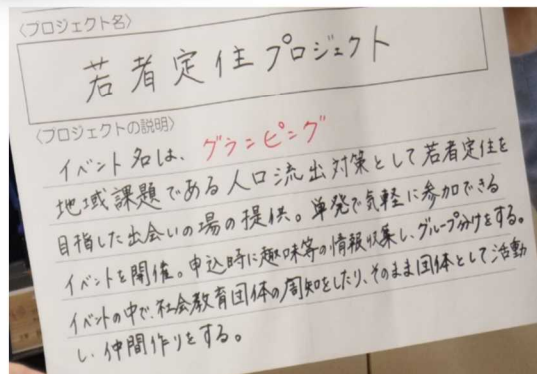 〈プロジェクト名〉
若者定住プロジェクト
〈プロジェクトの説明〉
イベント名は、グランピング
地域課題である人口流出対策として若者定住を
目指した出会いの場の提供。単発で気軽に参加できる
イベントを開催。申込時に趣味等の情報収集し、グループ分けをする。
イベントの中で、社会教育団体の周知をしたり、そのまま団体として活動
し、仲間作りをする。